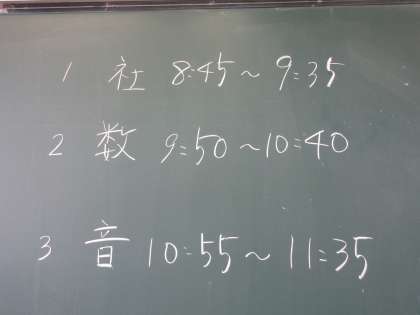 1 社 8:45～9:35
2 数 9:50～10:40
3 音 10:55～11:35